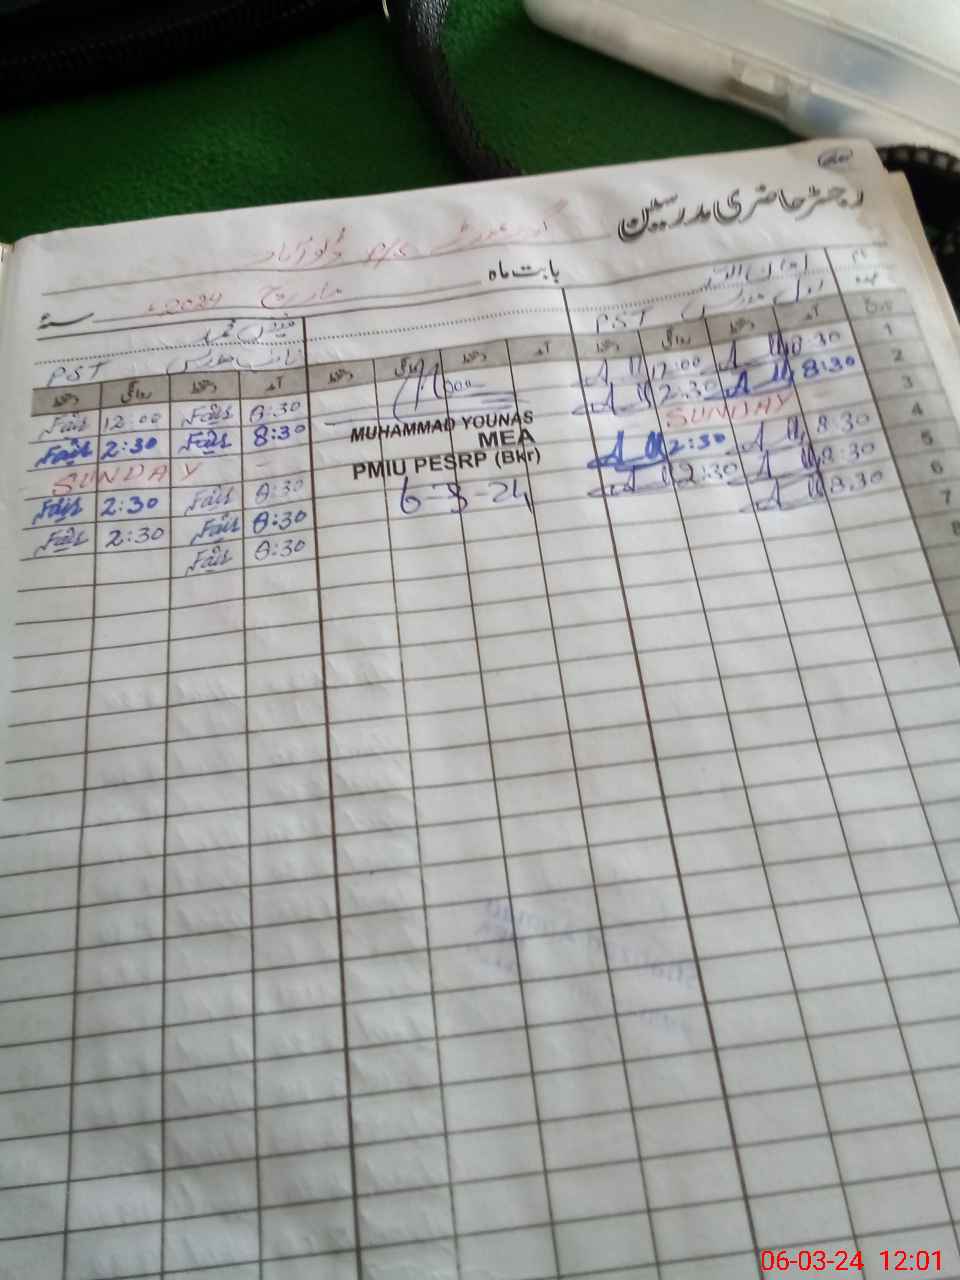 رجسٹر حاضری مدرسین
گورنمنٹ P/S
بابت ماہ مارچ 2024ء سنہ
نام
عہدہ
PST
PST
تاریخ آمد دستخط روانگی دستخط آمد دستخط روانگی دستخط آمد دستخط روانگی دستخط
1 8:30 12:00 8:30 Fair 12:00 Fair
2 8:30 2:30 8:30 Fair 2:30 Fair
3 SUNDAY SUNDAY
4 8:30 2:30 8:30 Fair 2:30 Fair
5 8:30 2:30 8:30 Fair 2:30 Fair
6 8:30 8:30 Fair
7
8
MUHAMMAD YOUNAS
MEA
PMIU PESRP (Bkr)
6-3-24
06-03-24 12:01